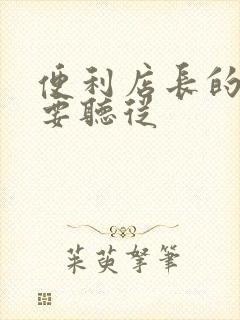 便利店長的
要聽從
茱萸拏筆